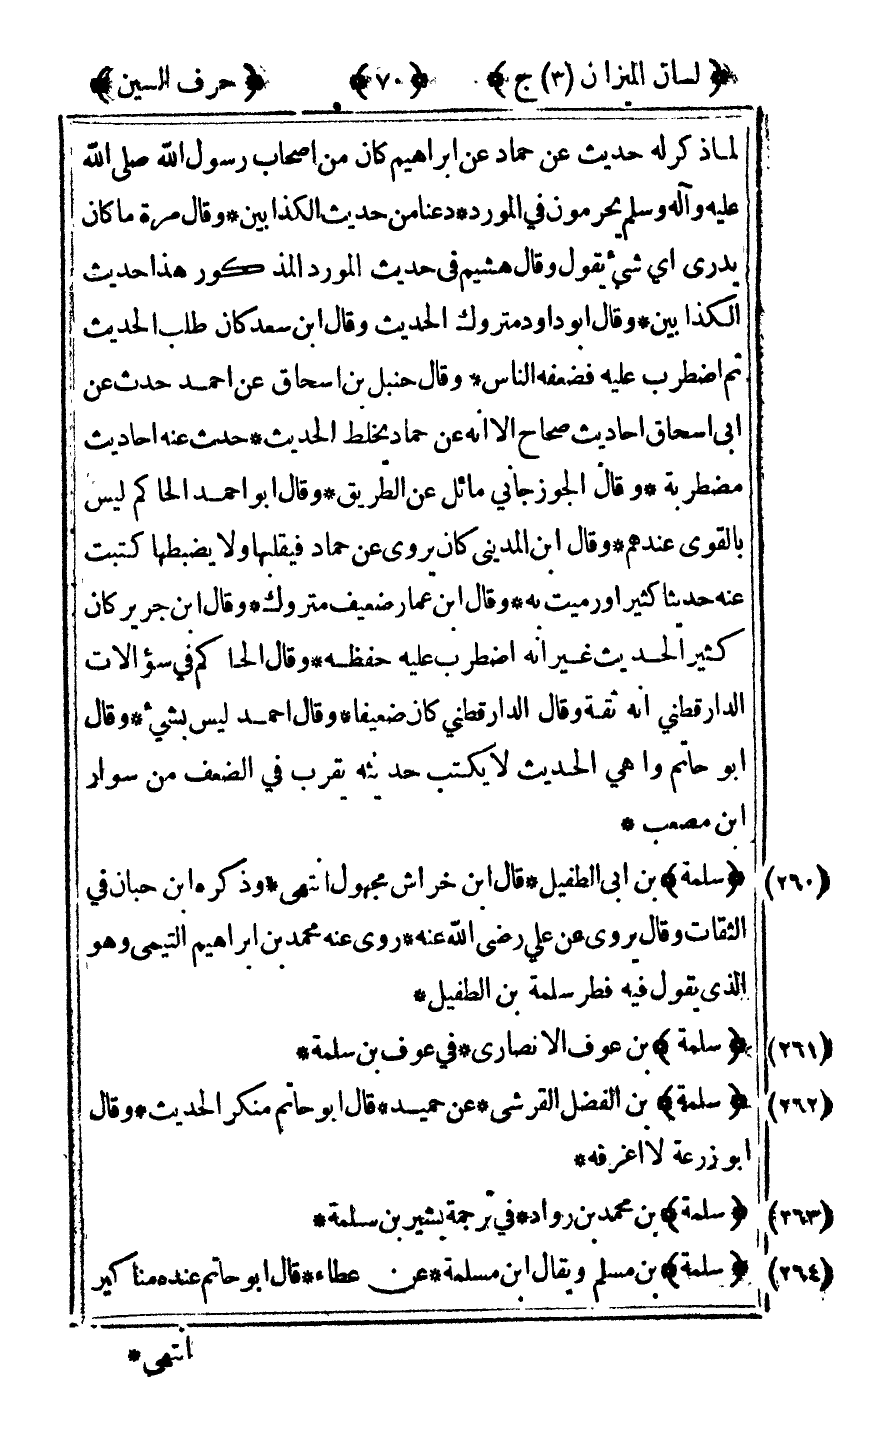 ﴿ لسان الميزان (٣) ج ﴾ ﴿ ٧٠ ﴾ ﴿ حرف السين ﴾
لماذكر له حديث عن حماد عن ابراهيم كان من اصحاب رسول الله صلى الله
عليه وآله وسلم يحرمون في المورد*دعنا من حديث الكذابين*وقال مرة ما كان
يدرى اي شئ يقول وقال هشيم فى حديث المورد المذكور هذا حديث
الكذابين*وقال ابو داود متروك الحديث وقال ابن سعد كان طلب الحديث
ثم اضطرب عليه فضعفه الناس* وقال حنبل بن اسحاق عن احمد حدث عن
ابى اسحاق احاديث صحاح الا انه عن حماد يخلط الحديث*حدث عنه احاديث
مضطربة *وقال الجوزجاني مائل عن الطريق*وقال ابو احمد الحاكم ليس
بالقوى عندهم*وقال ابن المدينى كان يروى عن حماد فيقلبها ولا يضبطها كتبت
عنه حديثا كثيرا ورميت به*وقال ابن عمار ضعيف متروك*وقال ابن جرير كان
كثير الحديث غير انه اضطرب عليه حفظه*وقال الحاكم في سؤالات
الدارقطني انه ثقة وقال الدارقطني كان ضعيفا*وقال احمد ليس بشئ*وقال
ابو حاتم واهي الحديث لا يكتب حديثه يقرب في الضعف من سوار
ابن مصعب *
(٢٦٠) ﴿سلمة﴾ بن ابى الطفيل*قال ابن خراش مجهول انتهى*وذكره ابن حبان في
الثقات وقال يروى عن علي رضى الله عنه*روى عنه محمد بن ابراهيم التيمى وهو
الذى يقول فيه فطر سلمة بن الطفيل*
(٢٦١) ﴿ سلمة ﴾ بن عوف الانصارى*في عوف بن سلمة*
(٢٦٢) ﴿ سلمة﴾ بن الفضل القرشى*عن حميد*قال ابو حاتم منكر الحديث*وقال
ابو زرعة لا اعرفه*
(٢٦٣) ﴿ سلمة﴾ بن محمد بن رواد*في ترجمة بشير بن سلمة*
(٢٦٤) ﴿ سلمة﴾ بن مسلم ويقال ابن مسلمة*عن عطاء*قال ابو حاتم عنده مناكير
انتهى*